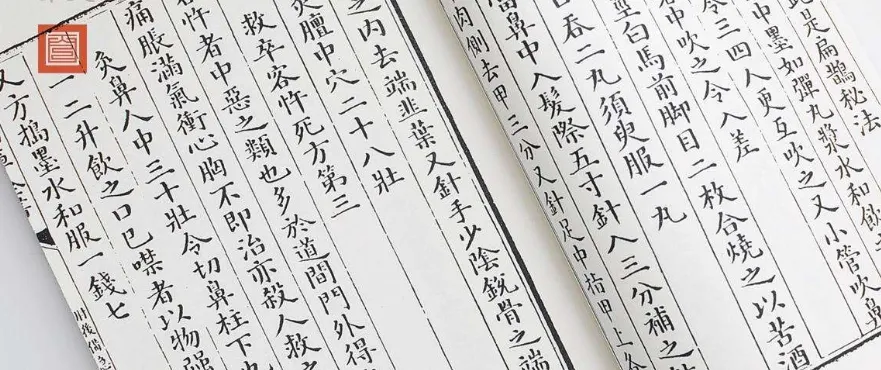 此是扁鵲秘法
中墨如彈丸漿水和飲
令三四人更互吹之又小管吹鼻
中吹之令人差
白馬前脚目二枚合燒之以苦酒
日吞二丸須臾服一丸
當鼻中入髮際五寸針入三分補之
肉側去甲三分又針足中指甲上各
之内去端韭葉又針手少陰銳骨之端
灸膻中穴二十八壯
救卒客忤死方第三
客忤者中惡之類也多於道間門外得
痛脹滿氣衝心胸不即治亦殺人救之
灸鼻人中三十壯令切鼻柱下也
一二升飲之口已噤者以物強
又方搗墨水和服一錢七
肘後備急